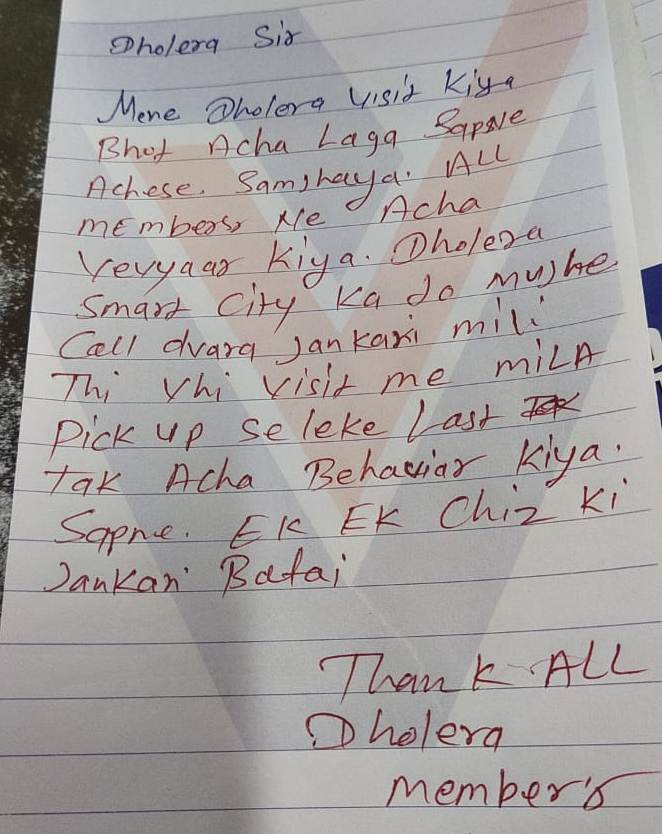 Dholera Sir
Mene Dholera Visit Kiya
Bhot Acha Laga Sapne
Achese. Samjhaya. ALL
members Ne Acha
Vevyaar Kiya. Dholera
Smart City Ka Jo Mujhe
Call dvara Jankari mili
Thi Vhi Visit me miLA
Pick up se leke Last
Tak Acha Behaviar Kiya.
Sapne. EK EK Chiz Ki
Jankari Batai
Thank ALL
Dholera
member's